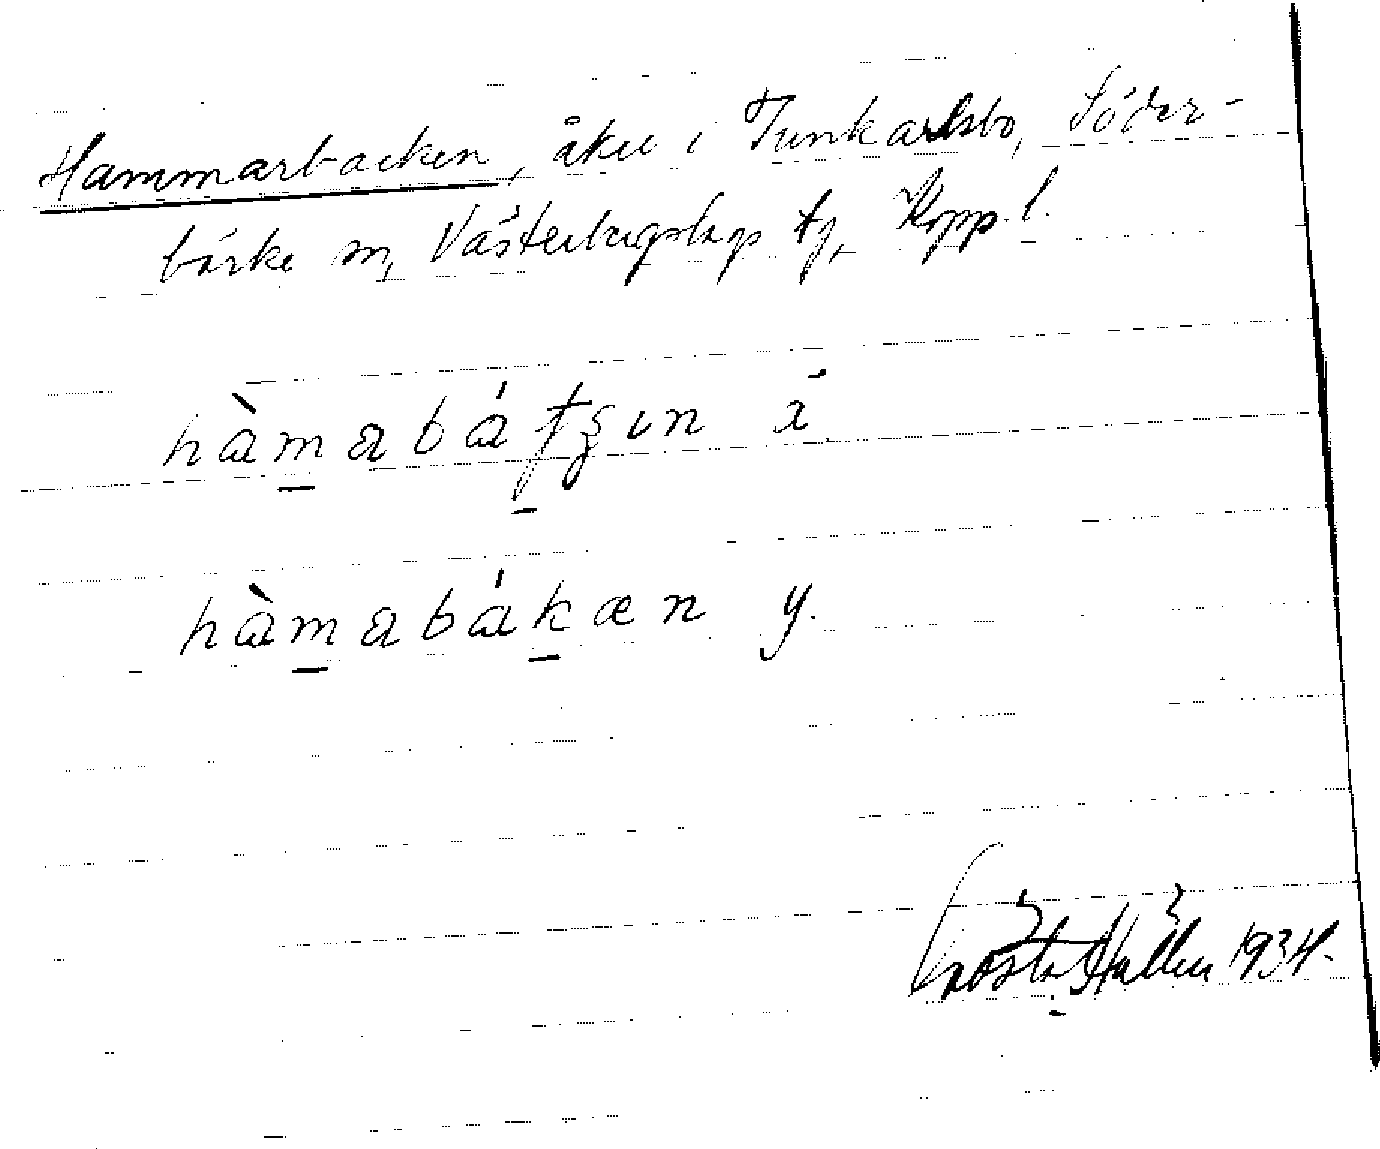 Hammarbacken, åker i Tunkarlsbo, Söder-
bärke sn, Västerbergslags tg, Kopp. l.
hàmabáʈʂın
hàmabákæn y.
Gösta Hallén 1934.